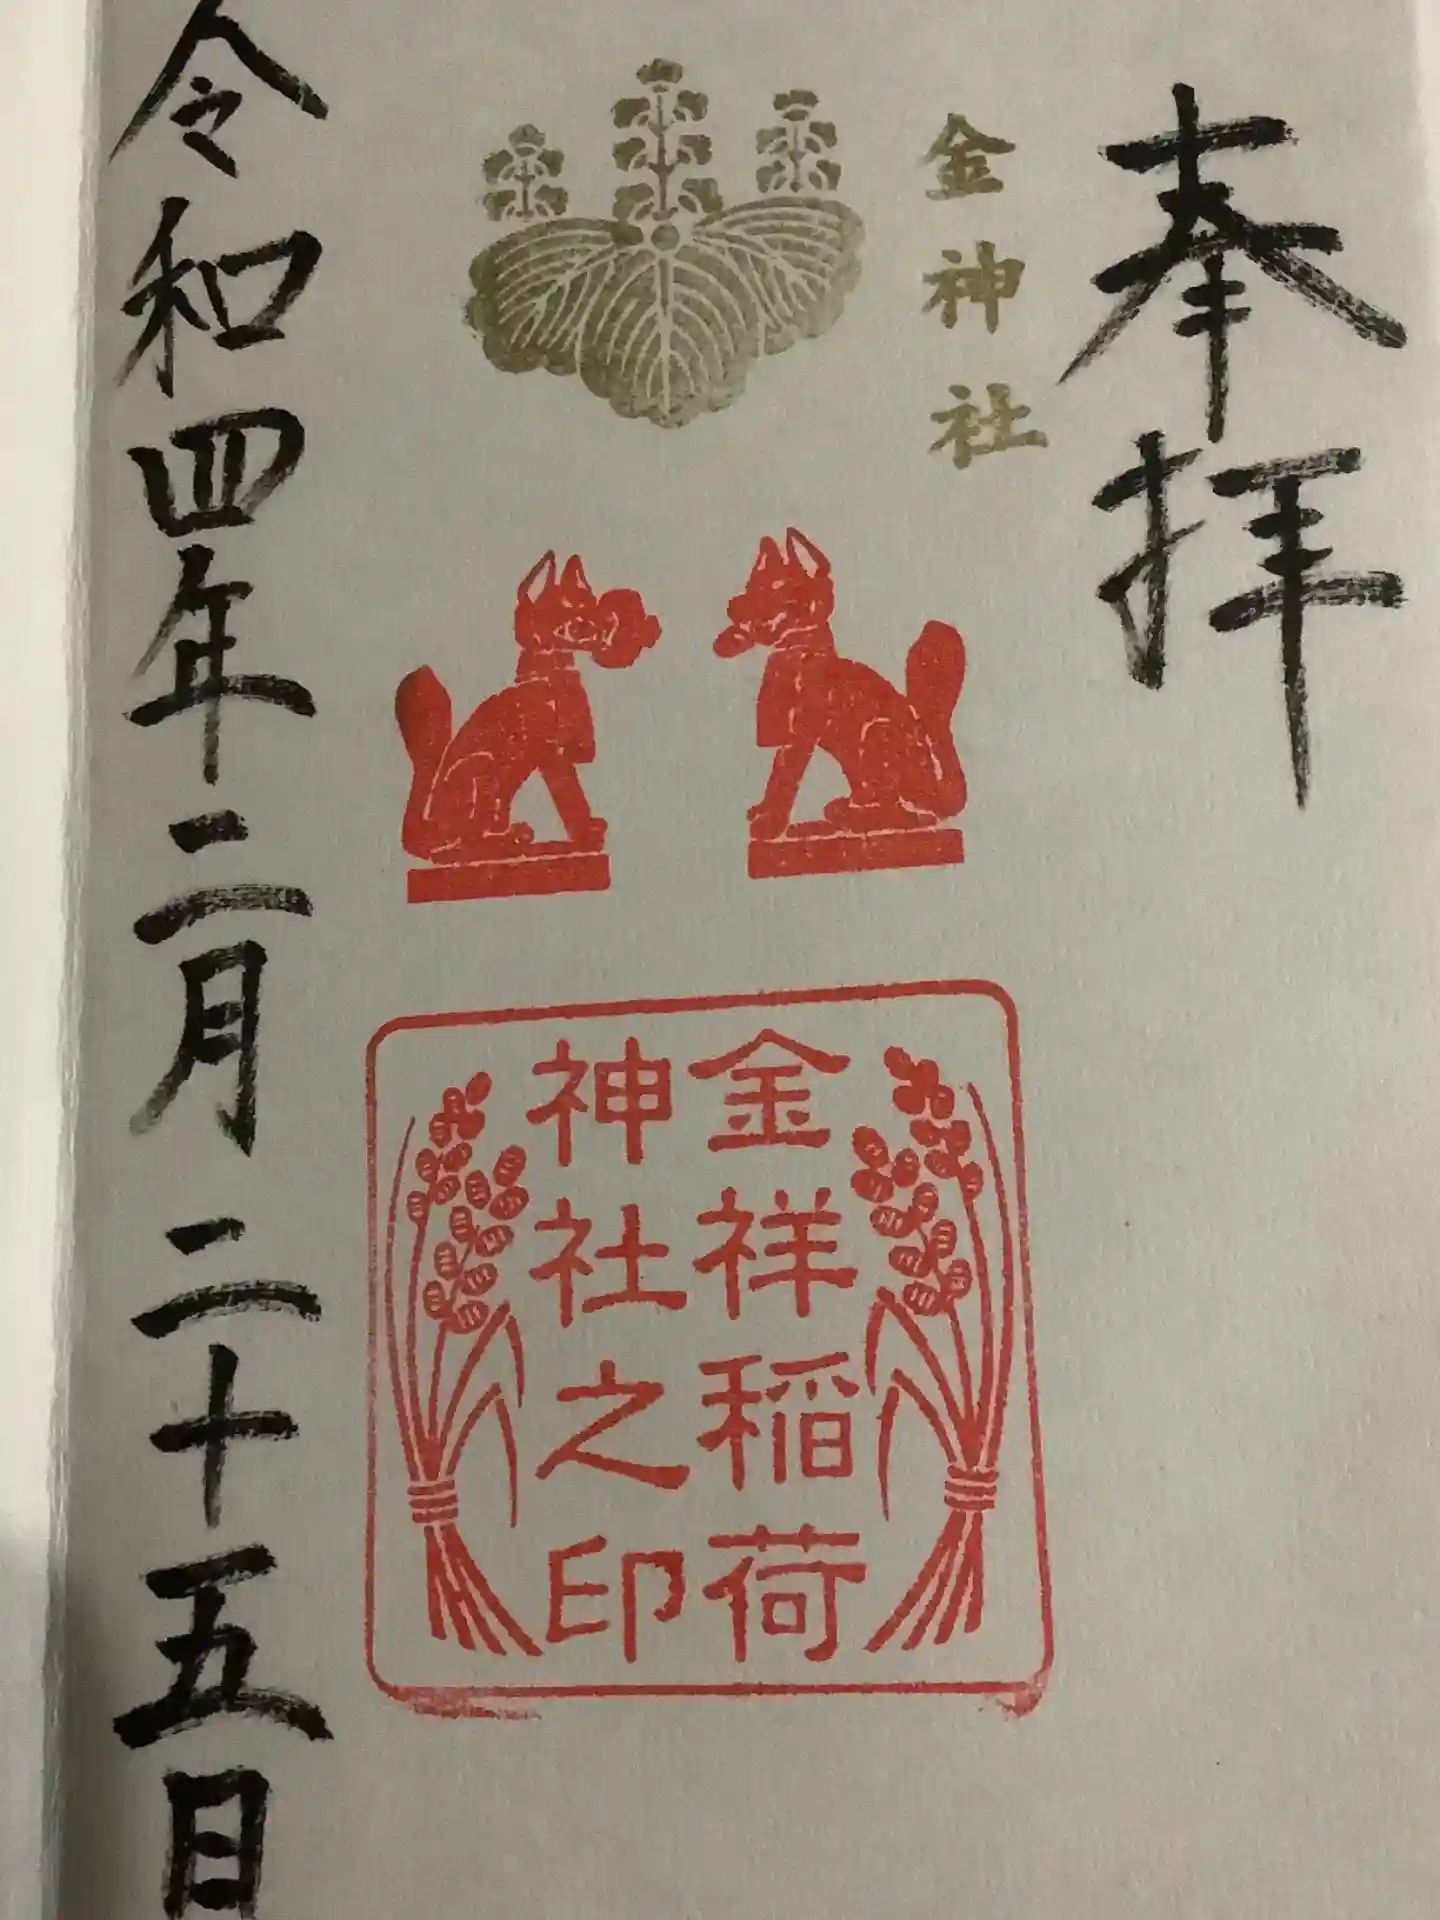 奉拝
金神社
金祥稲荷
神社之印
令和四年二月二十五日